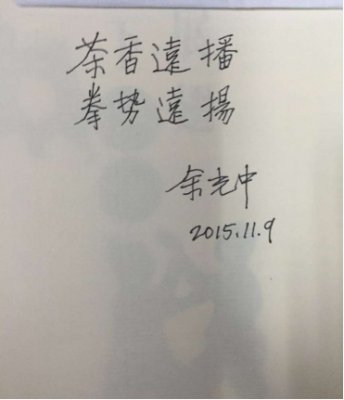 茶香遠播
拳势遠揚
余光中
2015.11.9